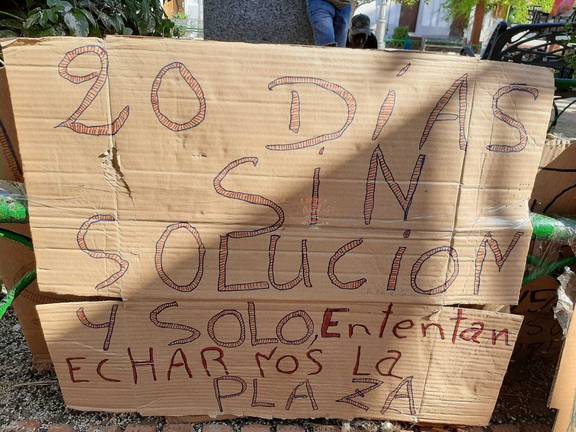 20 DíAS
SiN
SOLUCiON
Y SOLO, Ententan
ECHAR NOS LA
PLAZA